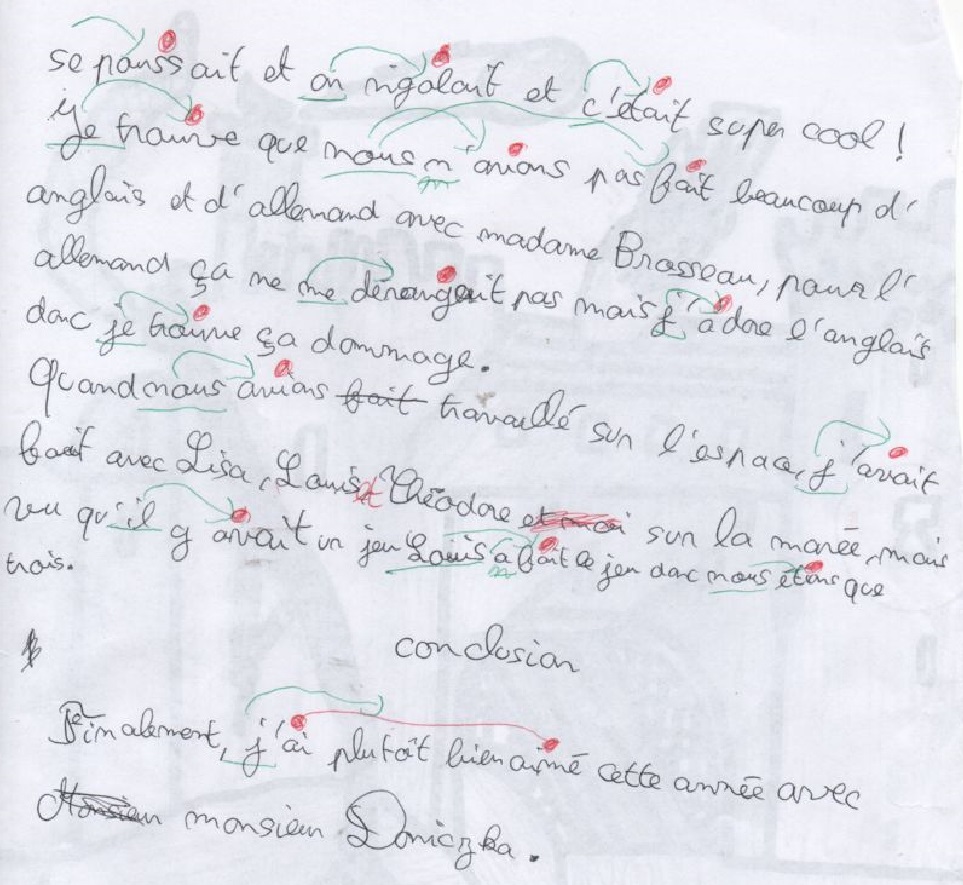 se poussait et on rigolait et c'était super cool !
Je trouve que nous n'avions pas fait beaucoup d'
anglais et d'allemand avec madame Brosseau, pour l'
allemand ça me me dérangait pas mais j'adore l'anglais
donc je trouve ça dommage.
Quand nous avions fait travaillé sur l'espace, j'avait
fait avec Lisa, Louis et Théodore et moi sur la marée, mais
vu qu'il y avait un jeu Louis a fait le jeu donc nous étions que
trois.
conclusion
Finalement, j'ai plutôt bien aimé cette année avec
Monsieur monsieur Doniczka.